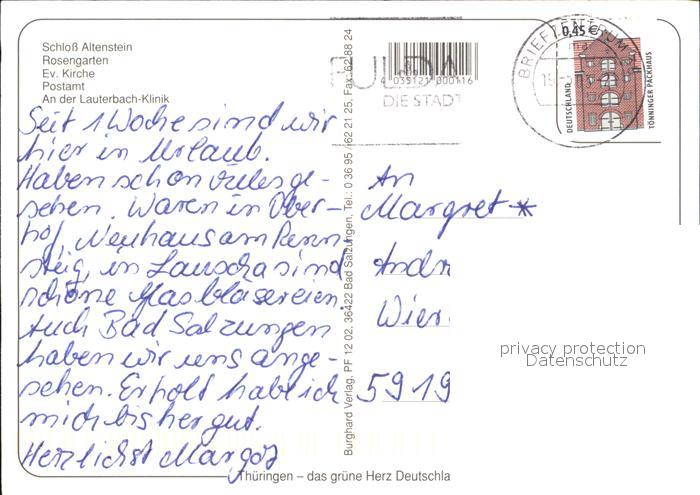 Schloß Altenstein
Rosengarten
Ev. Kirche
Postamt
An der Lauterbach-Klinik
Seit 1 Woche sind wir
hier in Urlaub.
Haben schon vieles ge-
sehen. Waren in Ober-
hof, Neuhaus am Renn
steig, in Lauscha sind
schöne Glasbläsereien
Auch Bad Salzungen
haben wir uns ange-
sehen. Erholt habe ich
mich bisher gut.
Herzlichst Margot
Burghard Verlag, PF 12 02, 36422 Bad Salzungen, Tel.: 0 36 95 /62 21 25, Fax: 62 88 24
4 035121 000116
FULDA
DIE STADT
BRIEFZENTRUM
0,45 €
DEUTSCHLAND
TÖNNINGER PACKHAUS
An
Margret *
Andr
Wier
5919
privacy protection
Datenschutz
Thüringen – das grüne Herz Deutschla